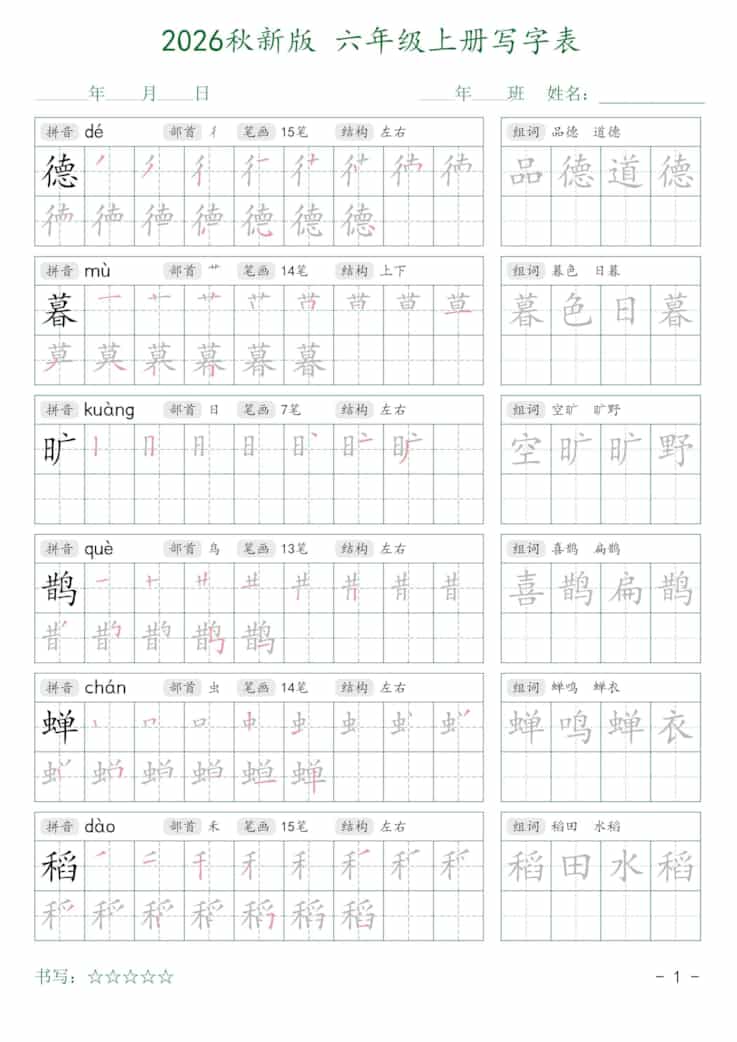 2026秋新版 六年级上册写字表
____年____月____日 ____年____班 姓名：__________
拼音 dé 部首 彳 笔画 15笔 结构 左右 组词 品德 道德
德 品德道德
拼音 mù 部首 艹 笔画 14笔 结构 上下 组词 暮色 日暮
暮 暮色日暮
拼音 kuàng 部首 日 笔画 7笔 结构 左右 组词 空旷 旷野
旷 空旷旷野
拼音 què 部首 鸟 笔画 13笔 结构 左右 组词 喜鹊 扁鹊
鹊 喜鹊扁鹊
拼音 chán 部首 虫 笔画 14笔 结构 左右 组词 蝉鸣 蝉衣
蝉 蝉鸣蝉衣
拼音 dào 部首 禾 笔画 15笔 结构 左右 组词 稻田 水稻
稻 稻田水稻
书写：☆☆☆☆☆ - 1 -